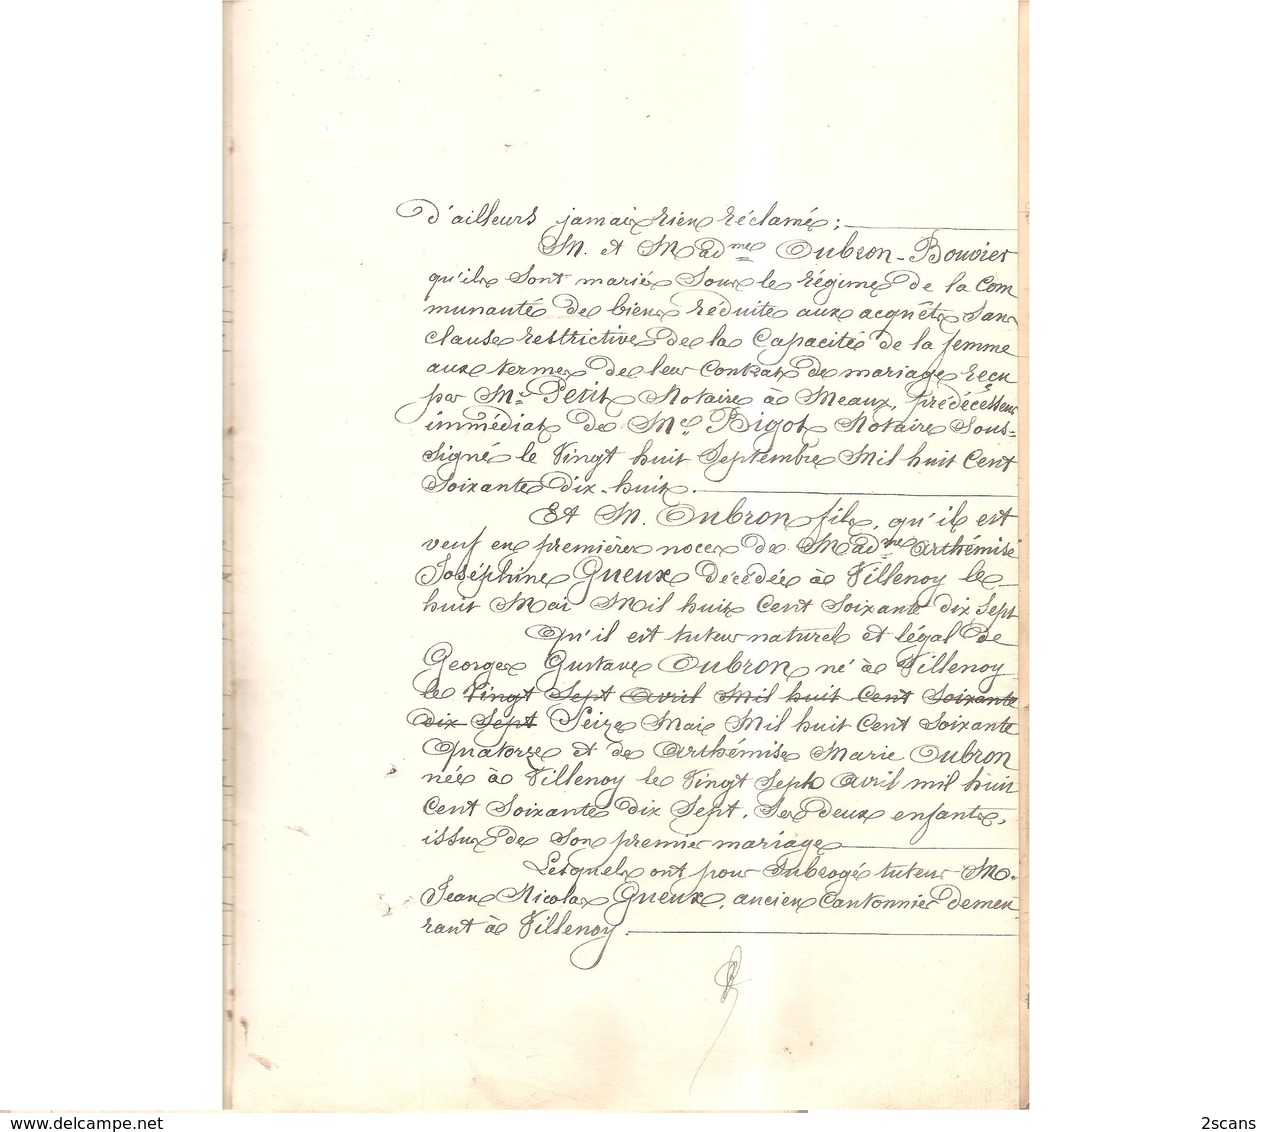 d'ailleurs jamais rien réclamé ;
M. et Mad^me Oubron-Bouvier
qu'ils sont mariés sous le régime de la Com
munauté de biens réduite aux acquêts sans
clause restrictive de la Capacité de la femme
aux termes de leur contrat de mariage reçu
par M^e Petit, Notaire à Meaux, prédécesseur
immédiat de M^e Bigot, Notaire Sous=
signé le Vingt huit Septembre Mil huit Cent
Soixante dix-huit.
Et M. Oubron fils, qu'il est
veuf en premières noces de Mad^me Arthémise
Joséphine Gueux décédée à Villenoy le
huit Mai Mil huit Cent Soixante dix Sept
Qu'il est tuteur naturel et légal de
Georges Gustave Oubron né à Villenoy
le Vingt Sept Avril Mil huit Cent Soixante
dix Sept Seize Mai Mil huit Cent Soixante
Quatorze et de Arthémise Marie Oubron
née à Villenoy le Vingt Sept Avril mil huit
Cent Soixante dix Sept, Ses deux enfants,
issus de Son premier mariage
Lesquels ont pour Subrogé tuteur M.
Jean Nicolas Gueux, ancien Cantonnier demeu
rant à Villenoy.
www.delcampe.net
2scans